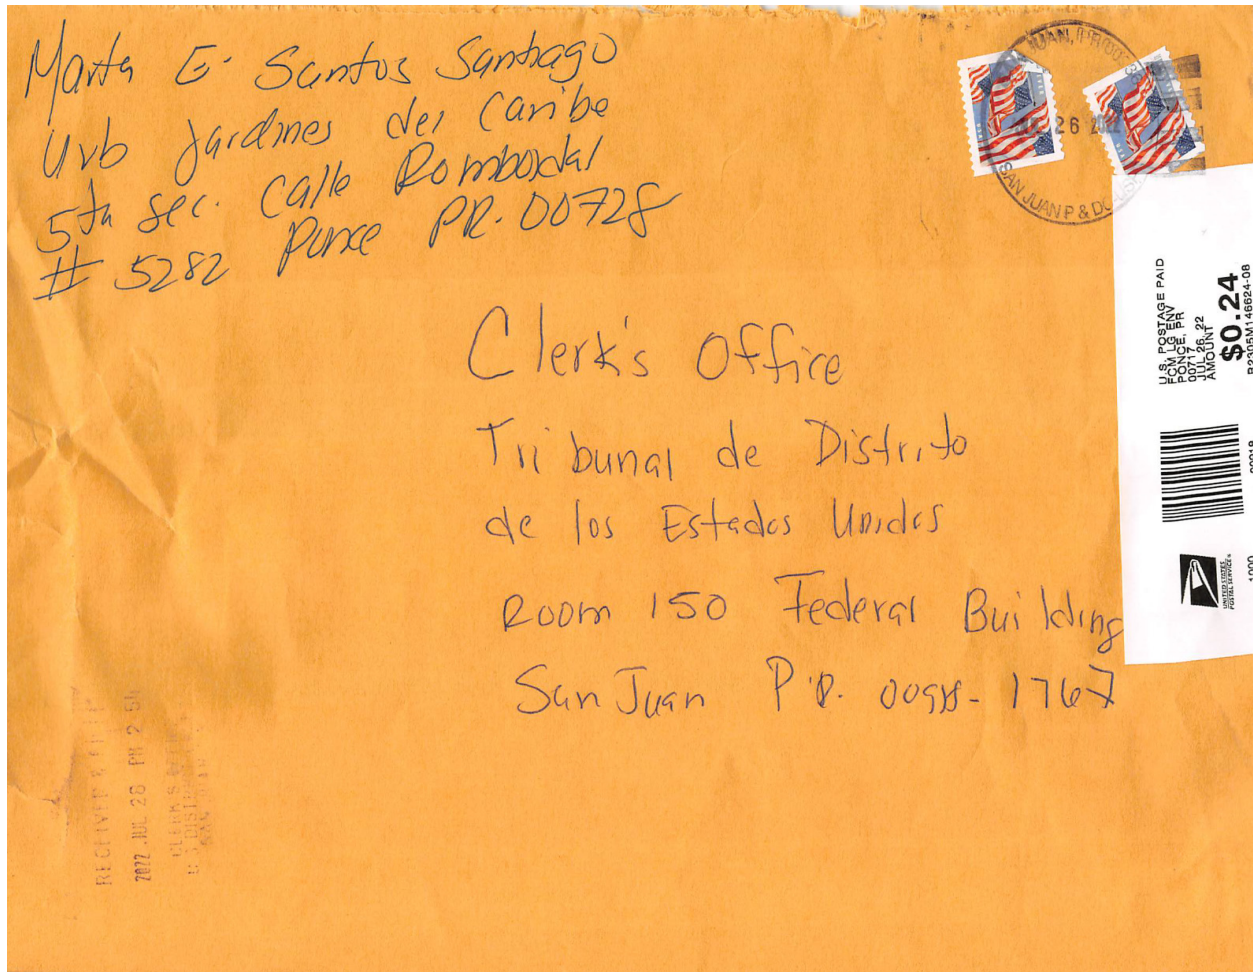 Marta E. Santos Santiago
Urb Jardines del Caribe
5ta sec. Calle Romboidal
# 5282 Ponce PR. 00728
JUAN, PR 009
26 2022
SAN JUAN P & DC
U.S. POSTAGE PAID
FCM LG ENV
PONCE, PR
00717
JUL 26, 22
AMOUNT
$0.24
R2305M146624-08
1000
UNITED STATES
POSTAL SERVICE
Clerk's Office
Tribunal de Distrito
de los Estados Unidos
Room 150 Federal Building
San Juan P.R. 00918-1767
RECEIVED &
2022 JUL 28 PM 2 5
CLERK'S
U.S. DISTRICT